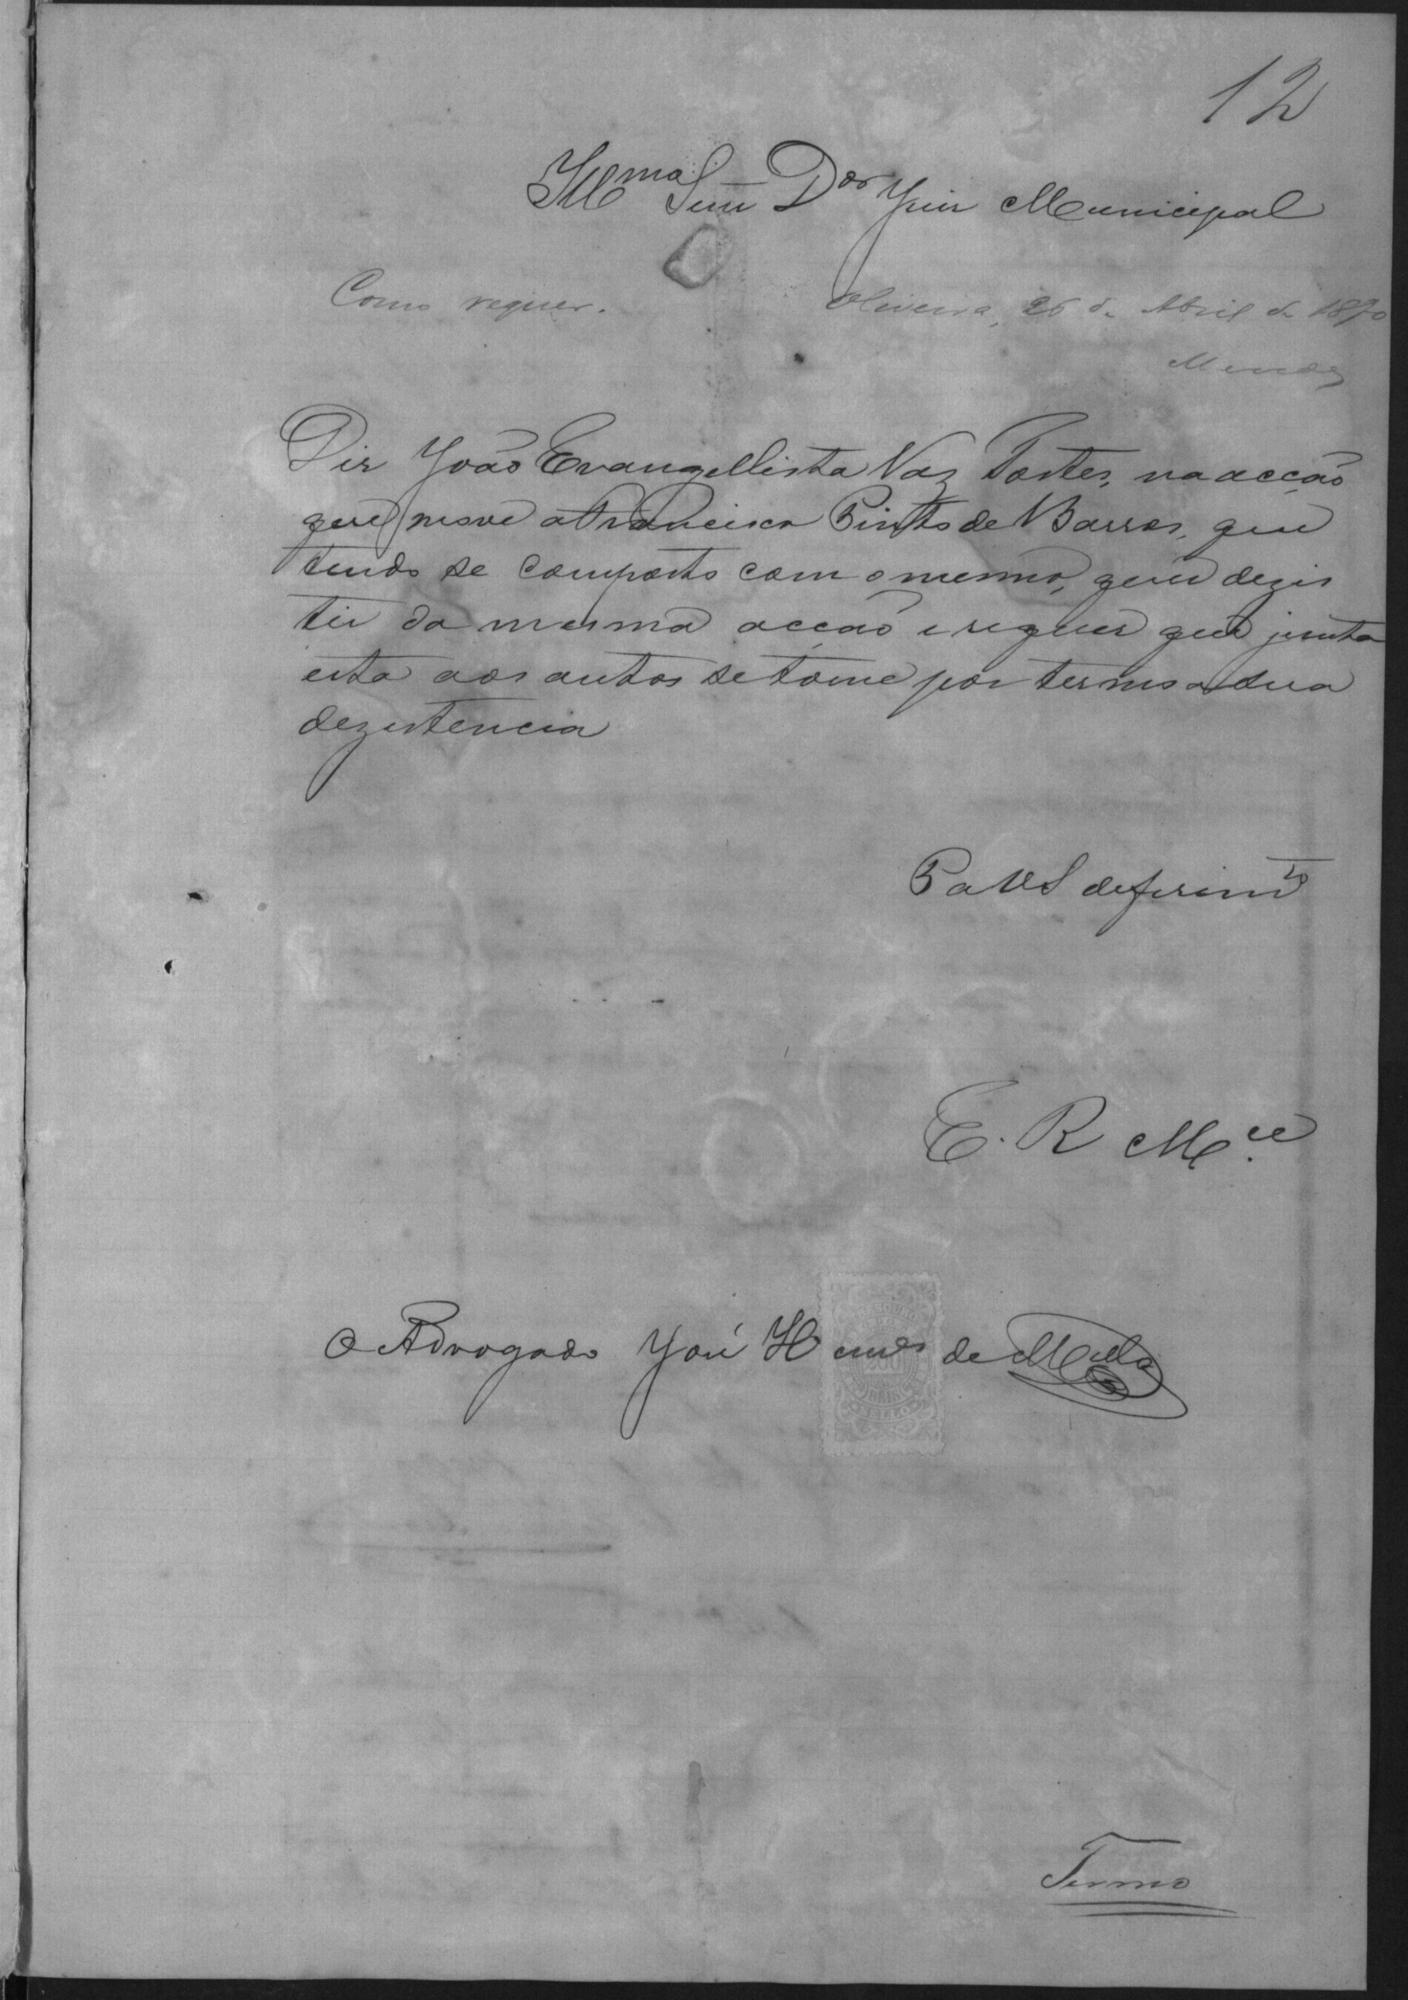 12
Illmo Senr Dor Juiz Municipal
Como requer. Oliveira, 26 de Abril de 1890
Mendes
Diz João Evangellista Vaz Fortes, na acção
que move a Francisco Pinto de Barros, que
tendo se composto com o mesmo, quer dezis
tir da mesma acção e requer que junta
esta aos autos se tome por termo a sua
dezistencia
P a VS deferimto
E. R Mce
O Advogado José H de Mello
Termo